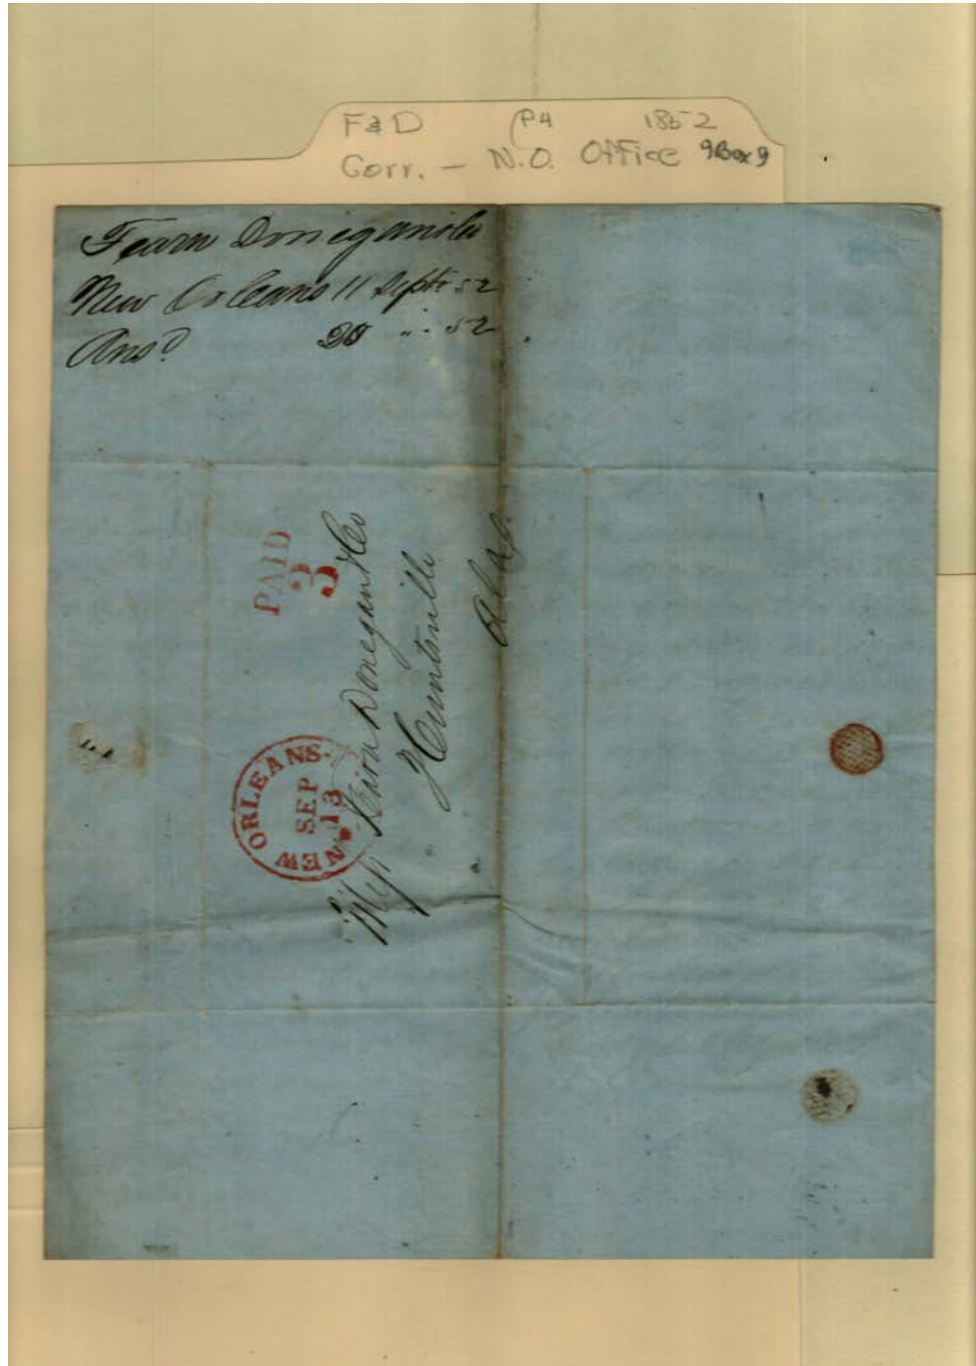 F & D P4 1852
Corr. - N.O. Office 9Box9
Fearn Donegan & Co
New Orleans 11 Sept. 52
Ansd 20 " . 52
PAID
3
NEW ORLEANS.
SEP
13
Mess Fearn Donegan & Co
Huntsville
Ala.